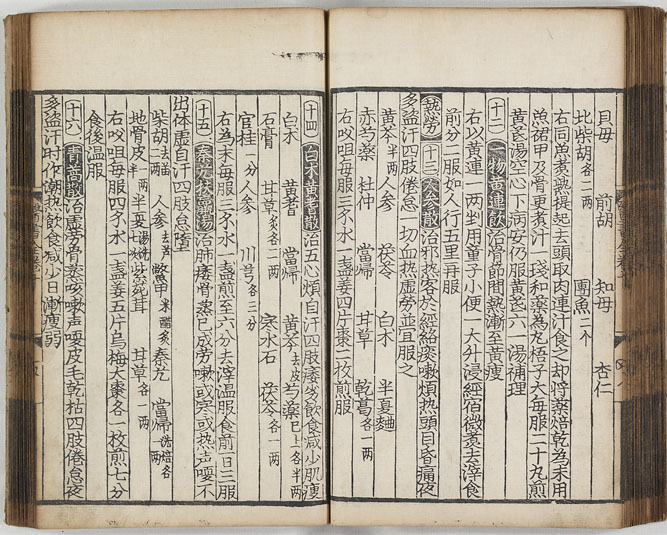 貝母 前胡 知母 杏仁
北柴胡各二兩 團魚二个
右同魚煑熟提起去頭取肉連汁食之却將藥焙乾為末用
魚裙甲及骨更煮汁一琖和藥為丸梧子大每服二十丸煎
黄芪湯空心下病安仍服黄芪六一湯補理
十二 一物黄連飲治骨節間熱漸至黄瘦
右以黄連一两剉用童子小便一大升浸經宿微煮去滓食
前分二服如人行五里再服
熱勞 十三 人參散治邪熱客於經絡痰嗽煩熱頭目昏痛夜
多盗汗四肢倦怠一切血熱虚勞並宜服之
黄芩半两 人参 白术 半夏麯
赤芍藥 杜仲 茯苓 甘草 乾葛各一两
右㕮咀每服四夕水一盞姜四片棗二枚煎服
十四 白术黄耆散治五心煩自汗四肢痿劣飲食减少肌瘦
白术 黄耆 當歸 黄芩去皮 芍藥已上各半两
石膏 甘草炙各二两 寒水石 茯苓各一两
官桂一分 人参 川芎各三分
右為末每服三夕水一盞煎至六分去滓温服食前一日三服
十五 秦艽扶羸湯治肺痿骨蒸已成勞嗽或寒或热声嗄不
出体虚自汗四肢怠墮
柴胡去苗二两 人参去芦 鱉甲米醋炙 秦艽 當歸洗焙各一两
地骨皮半两 半夏湯洗七次 紫菀茸 甘草各一两
右㕮咀每服四夕水一盞姜五片烏梅大棗各一枚煎七分
食後温服
十六 青蒿散治虚劳骨蒸咳嗽声嗄皮毛乾枯四肢倦怠夜
多盗汗时作潮热飲食减少日漸瘦弱